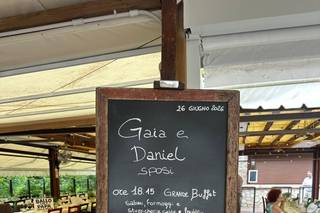 26 GIUGNO 2026
Gaia e
Daniel
sposi
ORE 18.15 GRANDE Buffet
salumi, formaggi e